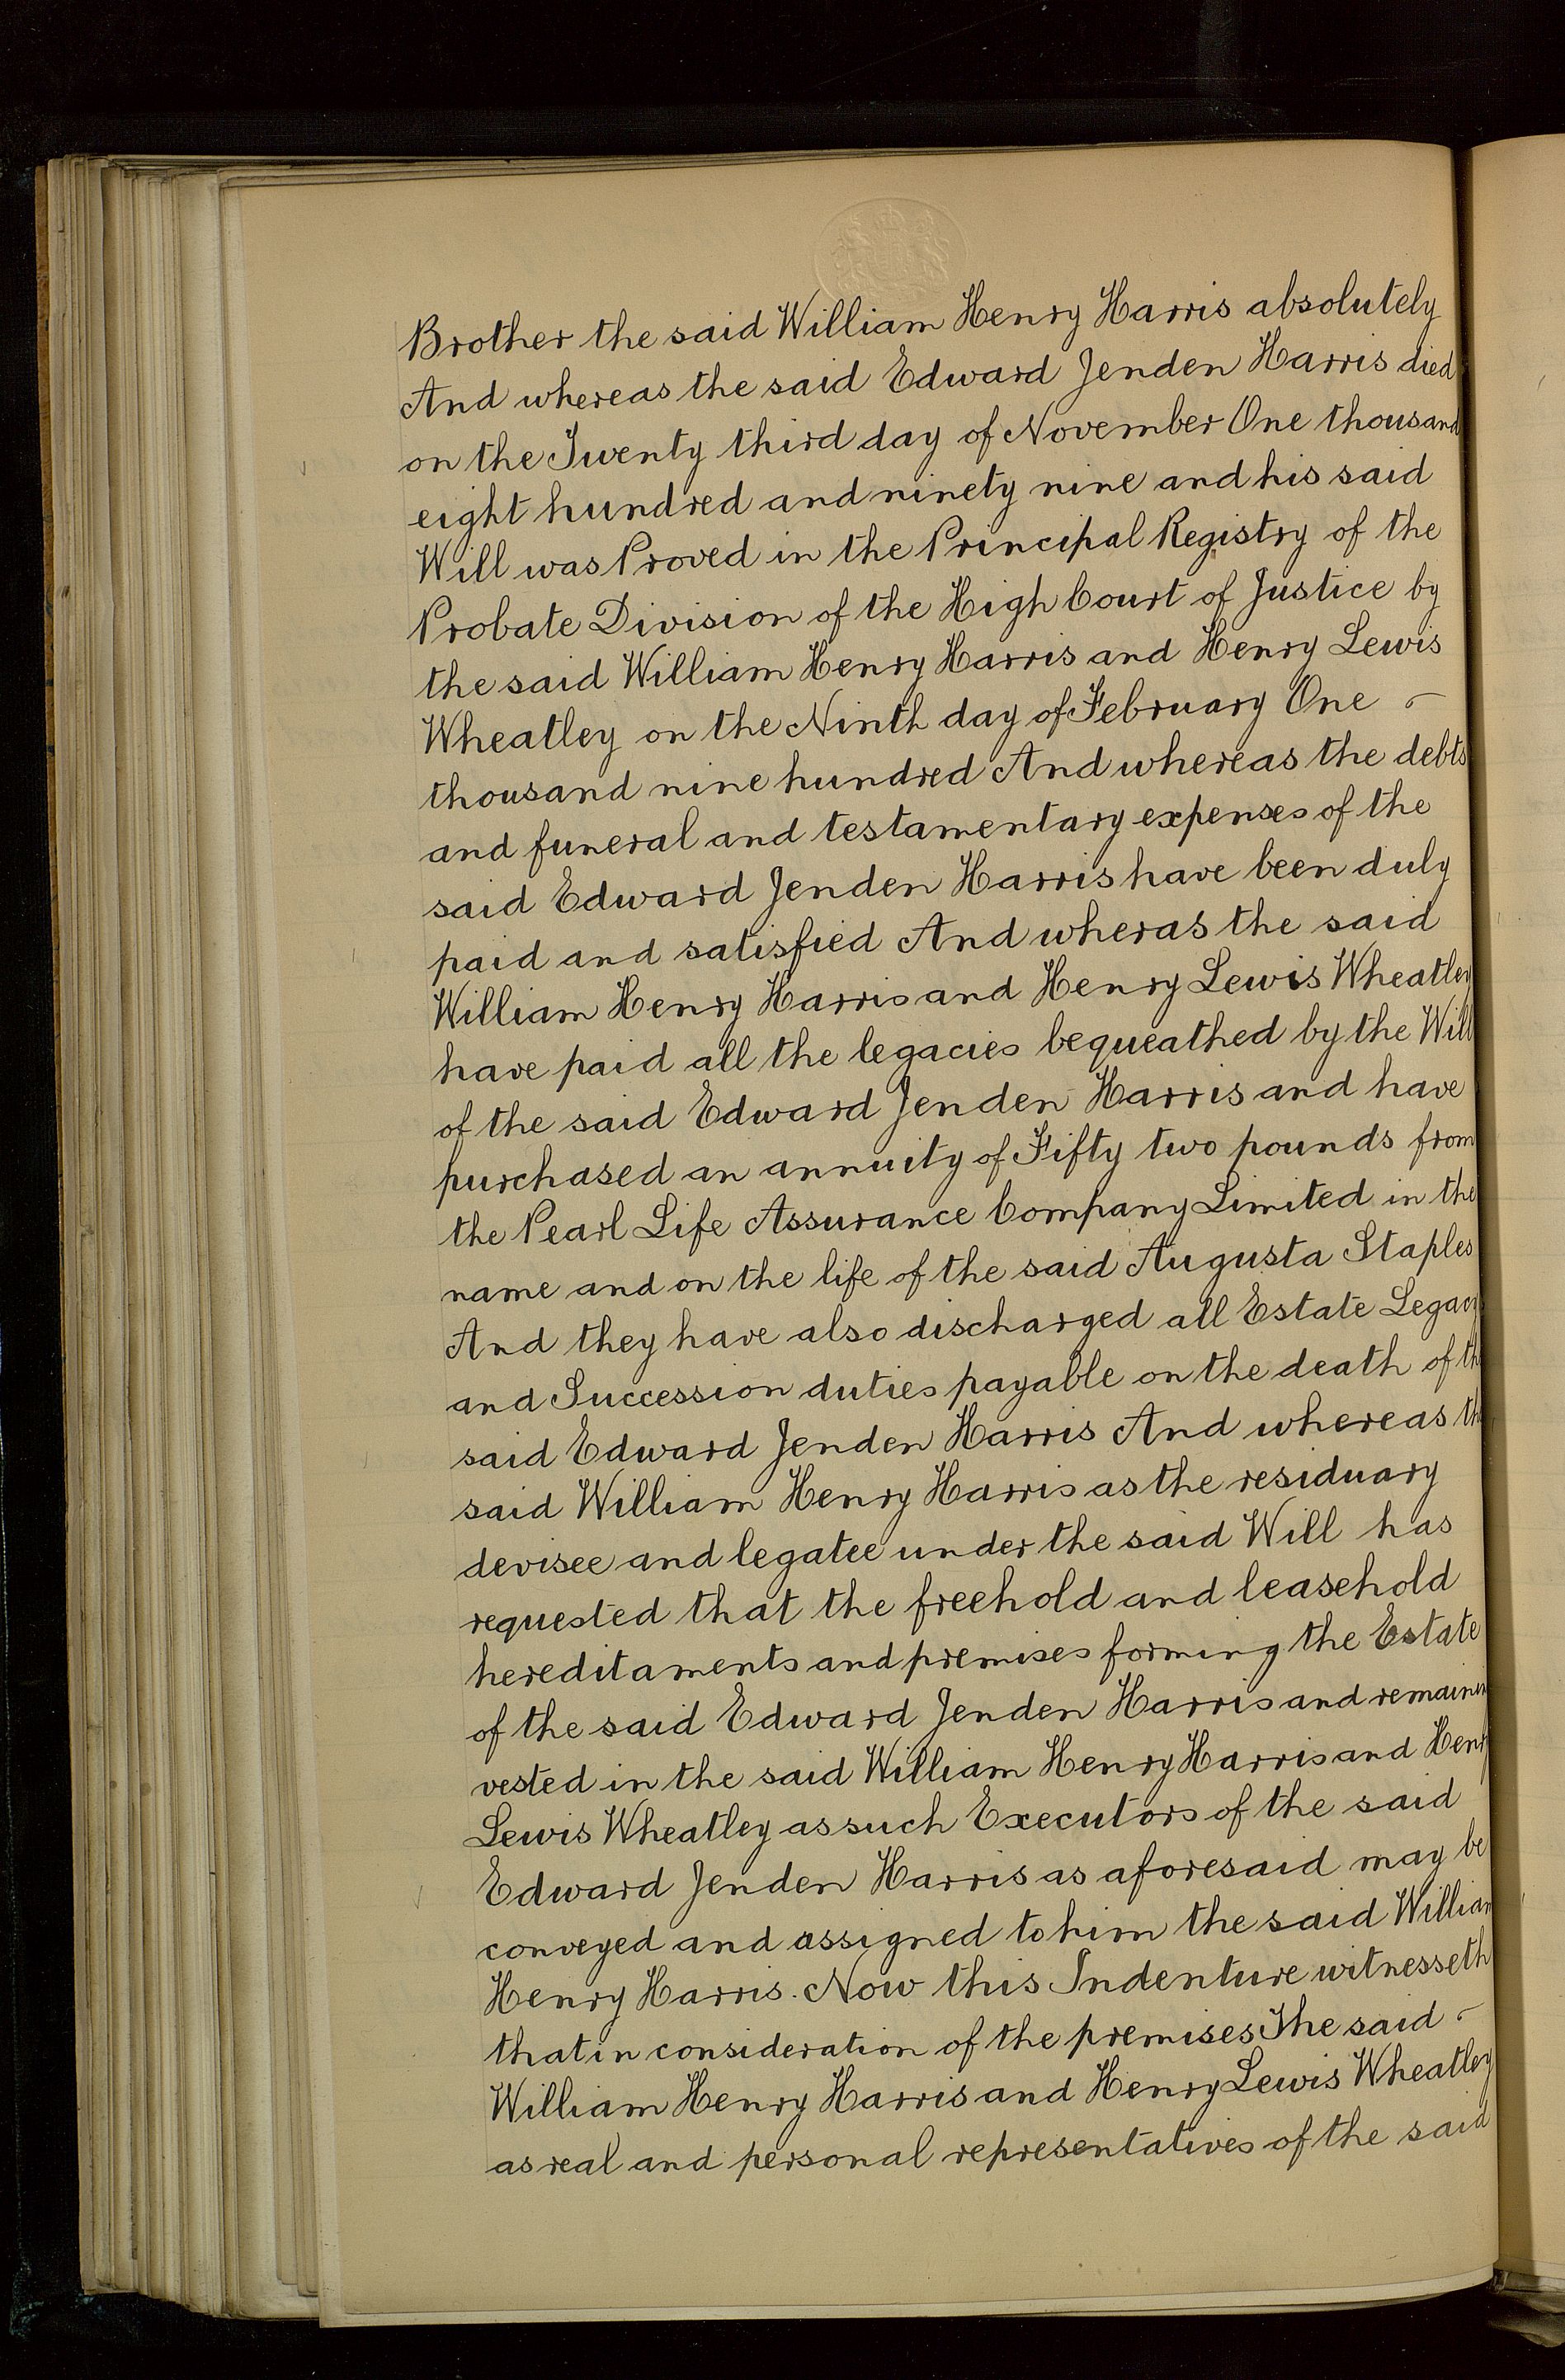 Brother the said William Henry Harris absolutely
And whereas the said Edward Jenden Harris died
on the Twenty third day of November One thousand
eight hundred and ninety nine and his said
Will was Proved in the Principal Registry of the
Probate Division of the High Court of Justice by
the said William Henry Harris and Henry Lewis
Wheatley on the Ninth day of February One
thousand nine hundred And whereas the debts
and funeral and testamentary expenses of the
said Edward Jenden Harris have been duly
paid and satisfied And wheras the said
William Henry Harris and Henry Lewis Wheatley
have paid all the legacies bequeathed by the Will
of the said Edward Jenden Harris and have
purchased an annuity of Fifty two pounds from
the Pearl Life Assurance Company Limited in the
name and on the life of the said Augusta Staples
And they have also discharged all Estate Legacy
and Succession duties payable on the death of the
said Edward Jenden Harris And whereas the
said William Henry Harris as the residuary
devisee and legatee under the said Will has
requested that the freehold and leasehold
hereditaments and premises forming the Estate
of the said Edward Jenden Harris and remainin
vested in the said William Henry Harris and Henry
Lewis Wheatley as such Executors of the said
Edward Jenden Harris as aforesaid may be
conveyed and assigned to him the said William
Henry Harris. Now this Indenture witnesseth
that in consideration of the premises The said
William Henry Harris and Henry Lewis Wheatley
as real and personal representatives of the said